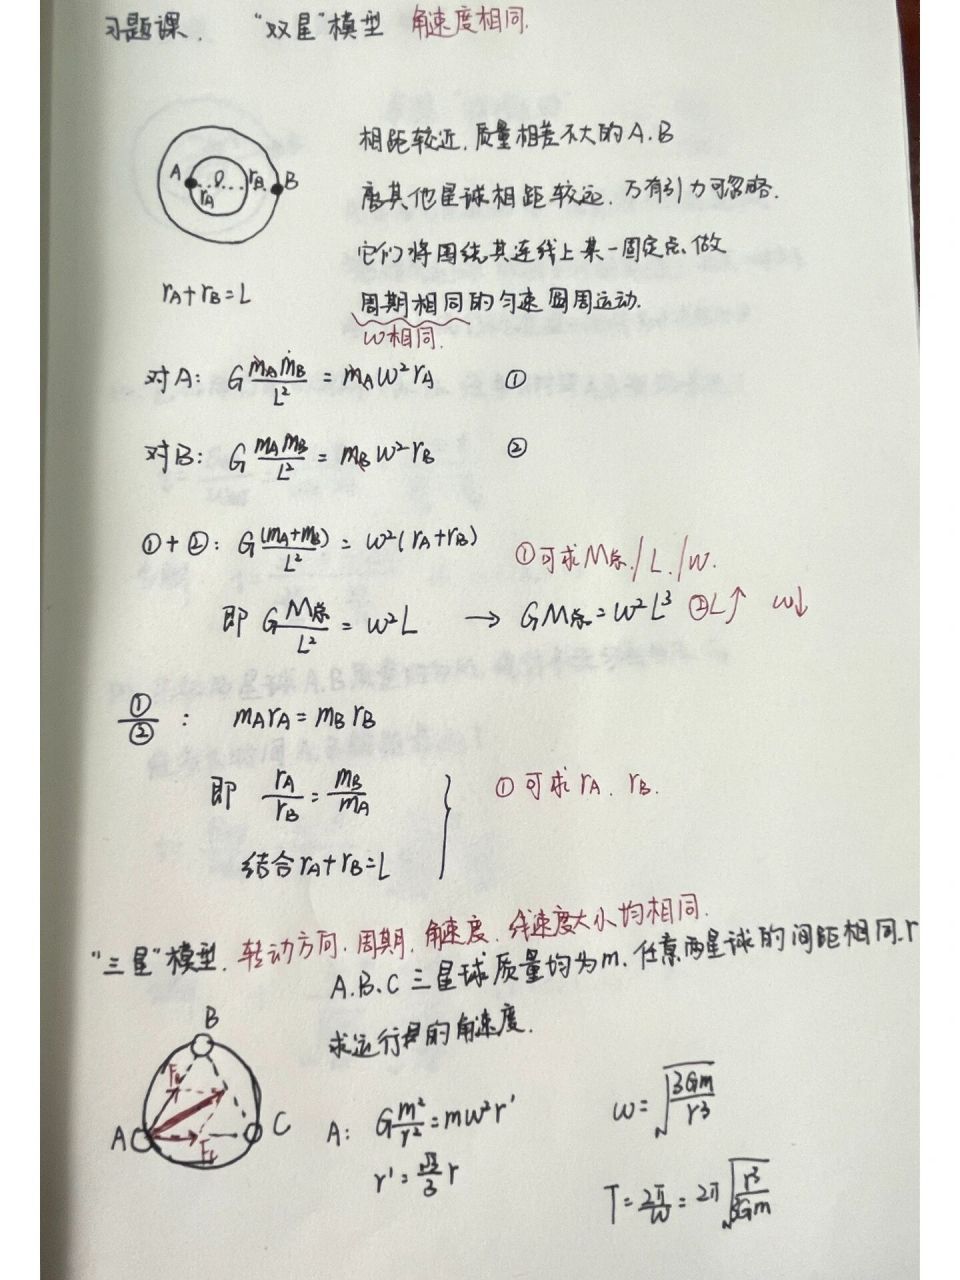 习题课. "双星"模型 角速度相同.
相距较近,质量相差不大的A.B
A O rB B
rA
离其他星球相距较远,万有引力可忽略.
它们将围绕其连线上某一固定点做
rA+rB=L
周期相同的匀速圆周运动.
w相同.
对A: G mAmB/L² = mAw²rA ①
对B: G mAmB/L² = mBw²rB ②
①+②: G (mA+mB)/L² = w²(rA+rB)
①可求M总/L/w.
即 G M总/L² = w²L → GM总=w²L³ ②L↑ w↓
①/②: mArA=mBrB
即 rA/rB = mB/mA
①可求rA.rB.
结合rA+rB=L
"三星"模型. 转动方向.周期.角速度.线速度大小均相同.
A.B.C三星球质量均为m.任意两星球的间距相同.r
求运行的角速度.
B
A
C
A: G m²/r² = mw²r'
w=√(3Gm/r³)
r'=√3/3 r
T=2π/w=2π√(r³/3Gm)